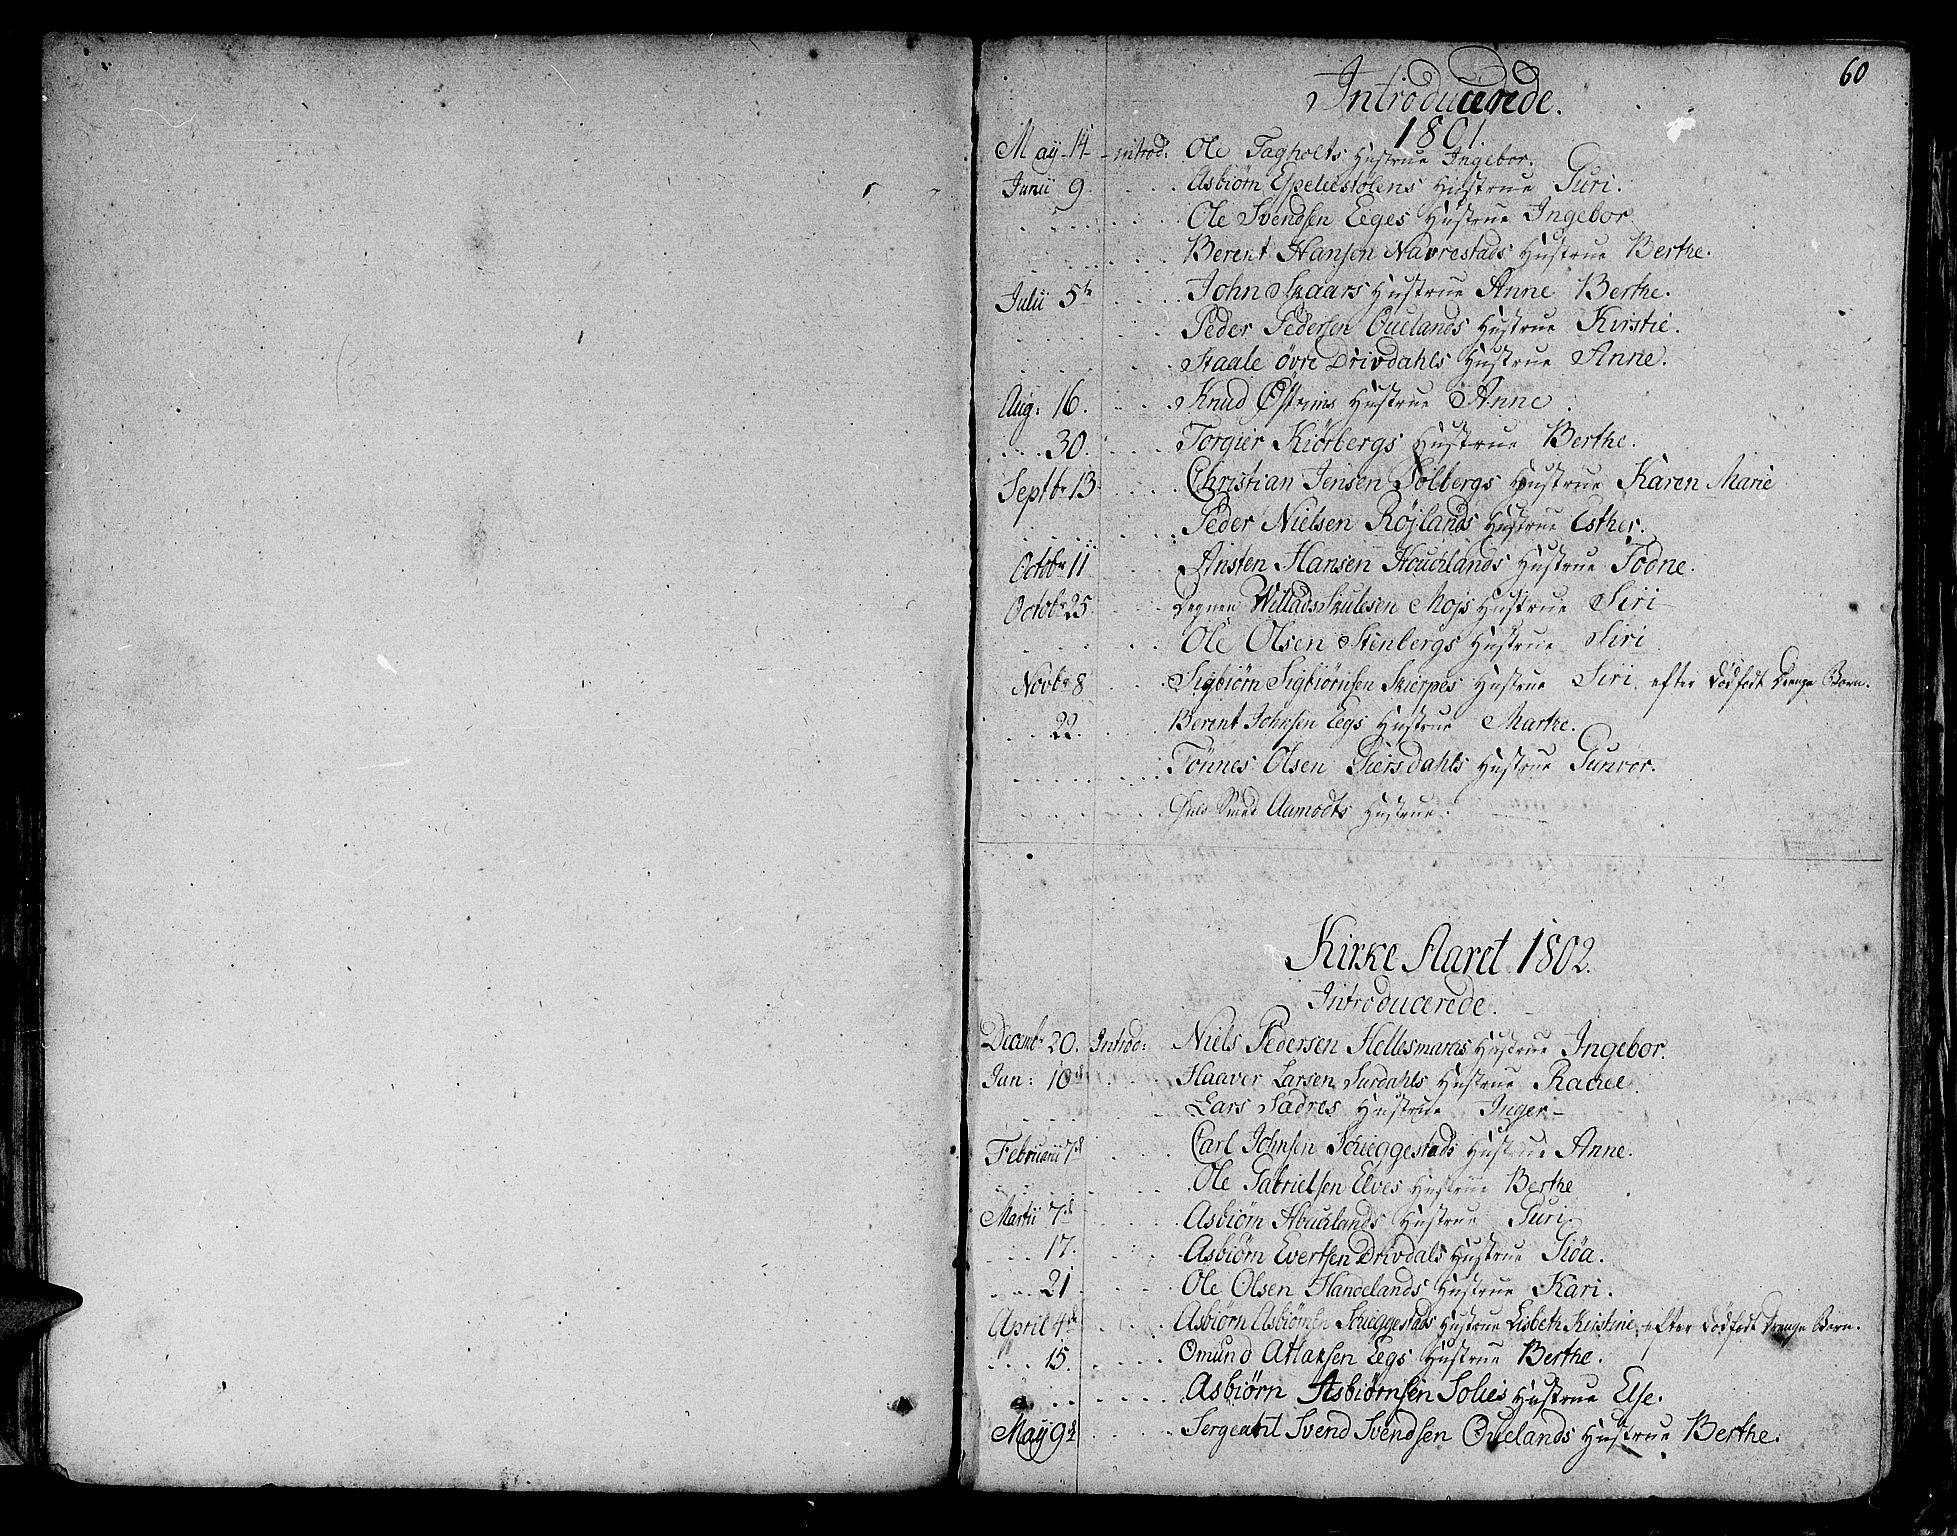 60
Introducerede.
1801.
May 14 introd: Ole Tagholts Hustrue Ingebor.
Junii 9 Asbiørn Espeliestølens Hustrue Guri.
Ole Svendsen Eeges Hustrue Ingebor
Berent Hansen Navrestads Hustrue Berthe.
Julii 5te John Skaars Hustrue Anne Berthe.
Peder Pedersen Qvelands Hustrue Kirstie.
Staale Øvre Drivdahls Hustrue Anne.
Aug: 16. Knud Østeims Hustrue Anne.
30. Torgier Kiørbergs Hustrue Berthe.
Septbr 13 Christian Jensen Solbergs Hustrue Karen Marie
Peder Nielsen Røjlands Hustrue Esther.
Octobr 11 Ansten Hansen Houchlands Hustrue Todne.
Octobr 25 Degnen Willads Skulesen Mojs Hustrue Siri
Ole Olsen Stenbergs Hustrue Siri
Novbr 8 Sigbiørn Sigbiørnsen Skierpes Hustrue Siri. efter dødfødt Drenge Barn.
22. Berent Johnsen Eegs Hustrue Marthe.
Tønnes Olsen Skiersdahls Hustrue Gunvor.
Smed Aamodts Hustrue.
Kirke Aaret 1802.
Introducerede.
Decembr 20. Introd: Niels Pedersen Hellesmarks Hustrue Ingebor.
Jan: 10de Haaver Larsen Surdahls Hustrue Rachel.
Lars Sadres Hustrue Inger
Februarii 7de Carl Johnsen Schieggestads Hustrue Anne.
Ole Gabrielsen Elves Hustrue Berthe
Martii 7de Asbiørn Houchlands Hustrue Guri
17. Asbiørn Evertsen Drivdals Hustrue Siøa.
21 Ole Olsen Handelands Hustrue Kari.
April 4de Asbiørn Asbiørnsen Schieggestads Hustrue Lisbeth Kirstine, efter dødfødt Drenge Barn.
15. Omund Atlaksen Eegs Hustrue Berthe.
Asbiørn Asbiørnsen Solies Hustrue Else.
Maji 9de Sergeant Svend Svendsen Qvelands Hustrue Berthe.